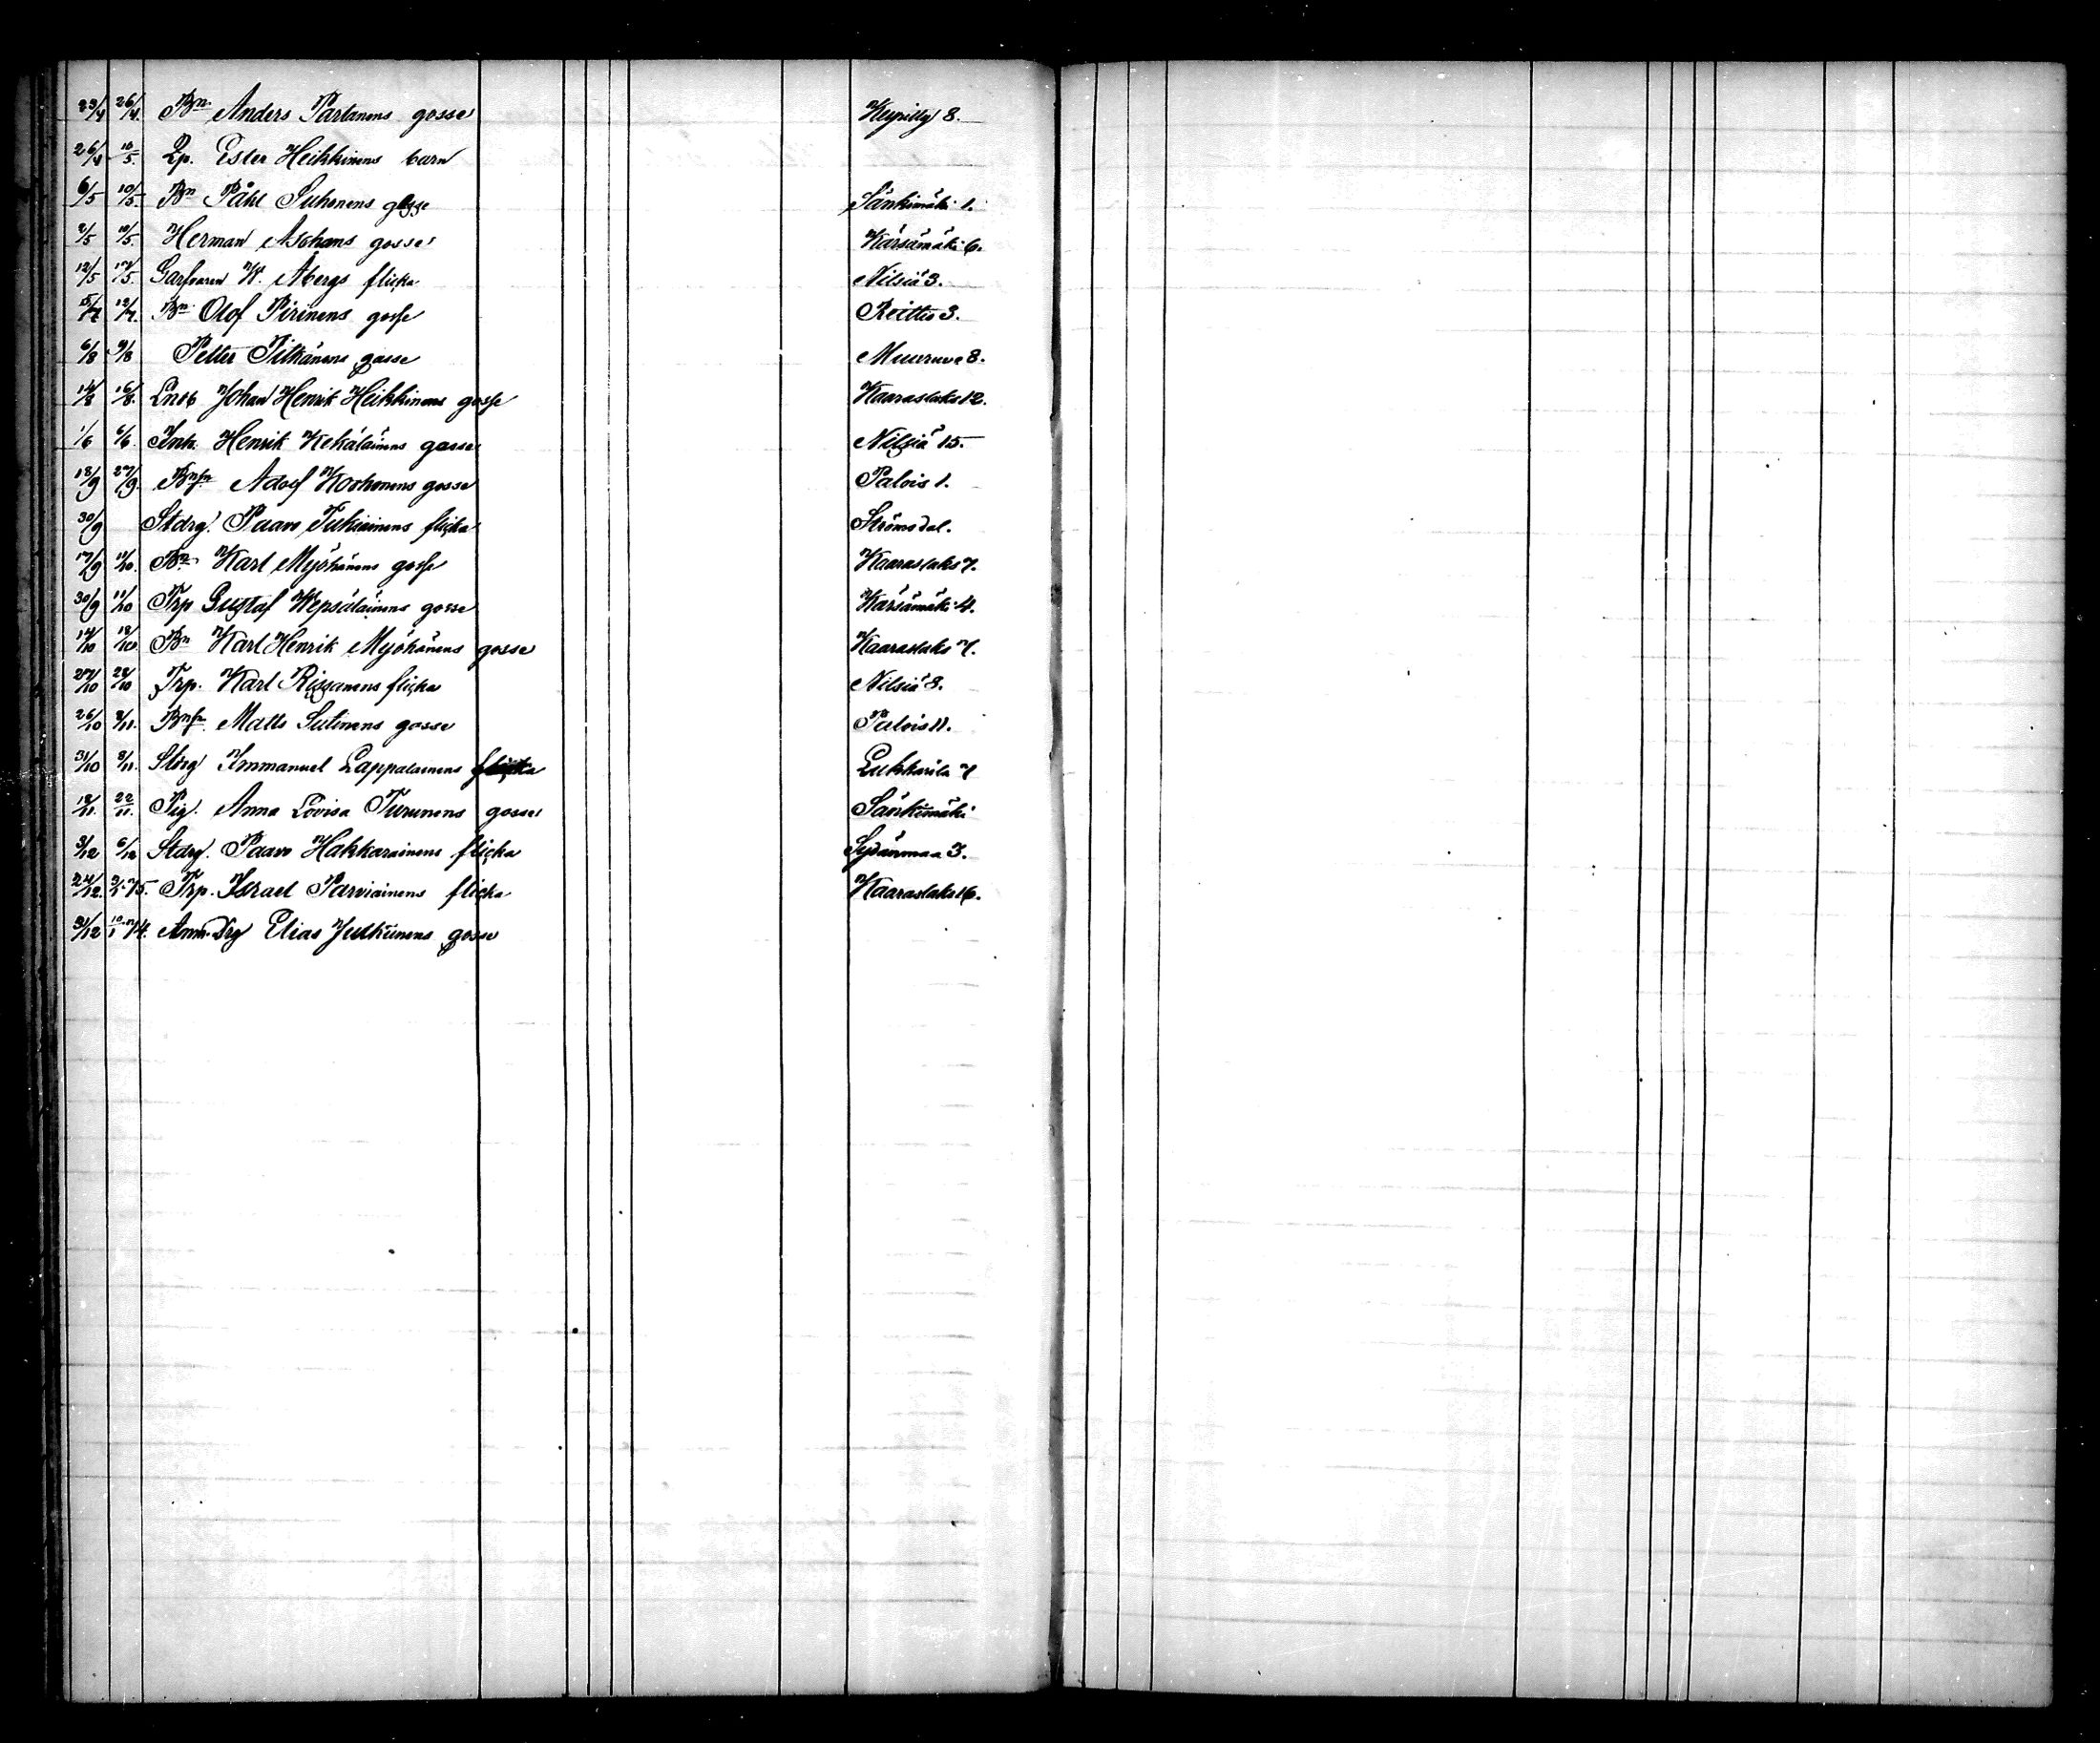 23/4 26/4. Bn. Anders Partanens gosse 8.
26/4 10/5. Lp. Ester Heikkinens barn
6/5 10/5 Bn Påhl Suhonens gosse Sänkimäki 1.
2/5 10/5. Herman Aschans gosse Kärsämäki 6.
12/5 17/5. Garfvaren K. Åbergs flicka Nilsiä 3.
5/7 12/7. Bn Olof Pirinens gosse Reittio 3.
6/8 9/8 Petter Pitkänens gosse Muuruve 8.
14/8 16/8. Johan Henrik Heikkinens gosse Kaaraslaks 12.
1/6 6/6. Inh. Henrik Kekäläinens gosse Nilsiä 15.
18/9 27/9. Bnfr Adolf Korhonens gosse Palois 1.
30/9 Stdrg. Paavo Tukiainens flicka Strömsdal.
17/9 11/10. Bn Karl Myöhänens gosse Kaaraslaks 7.
30/9 11/10 Trp Gustaf Wepsäläinens gosse Kärsämäki 4.
14/10 18/10 Bn Karl Henrik Myöhänens gosse Kaaraslaks 7.
27/10 28/10 Trp. Karl Rissanens flicka Nilsiä 8.
26/10 8/11. Bnfr. Matts Sutinens gosse Palois 11.
31/10 8/11. Stdrg Immanuel Lappalainens flicka Lukkarila 7
18/11. 22/11. Pig. Anna Lovisa Turunens gosse Sänkimäki
3/12 6/12 Stdrg. Paavo Hakkarainens flicka Sydänmaa 3.
24/12. 3/1 75. Trp. Israel Parviainens flicka Kaaraslaks 16.
31/12 10/1 74. Anm. Drg Elias Julkunens gosse